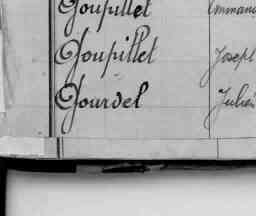 Goupillet Emmanu
Goupillet Joseph
Gourdel Julien